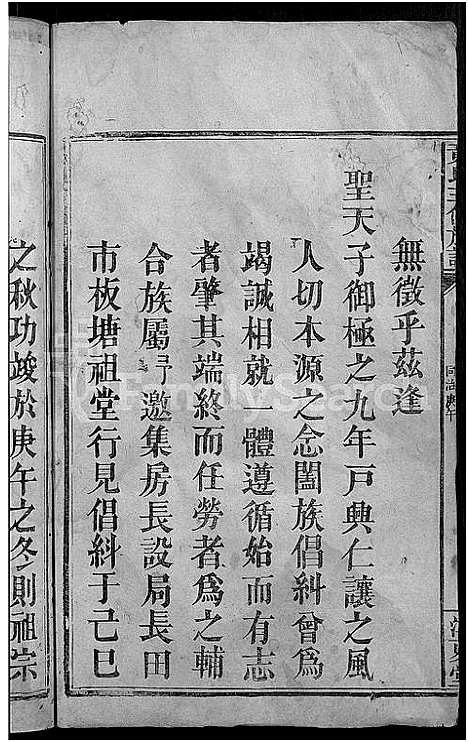 無徵乎茲逢
聖天子御極之九年戶興仁讓之風
人切本源之念闔族倡糾曾爲
竭誠相就一體遵循始而有志
者肇其端終而任勞者爲之輔
合族屬予邀集房長設局長田
市板塘祖堂行見倡糾于己巳
之秋功竣於庚午之冬則祖宗
FamilySearch